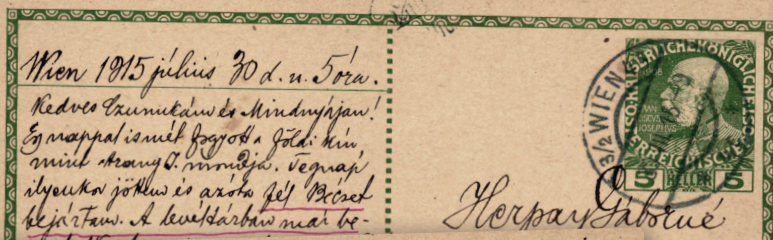 Wien 1915 július 30 d. u. 5 óra.
Kedves Czunukám és Mindnyájan!
Egy nappal ismét fogyott a földi kín,
mint Arany J. mondja. Tegnap
ilyenkor jöttem és azóta fél Bécset
bejártam. A levéltárban már be-
Herpay Gáborné
KAISERLICHE KÖNIGLICHE
ÖSTERREICHISCHE
5 HELLER 5
3/2 WIEN